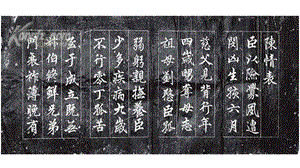 陳情表
臣以險釁夙遭
閔凶生孩六月
慈父見背行年
四歲舅奪母志
祖母劉愍臣孤
弱躬親撫養臣
少多疾病九歲
不行零丁孤苦
至于成立既無
叔伯終鮮兄弟
門衰祚薄晚有